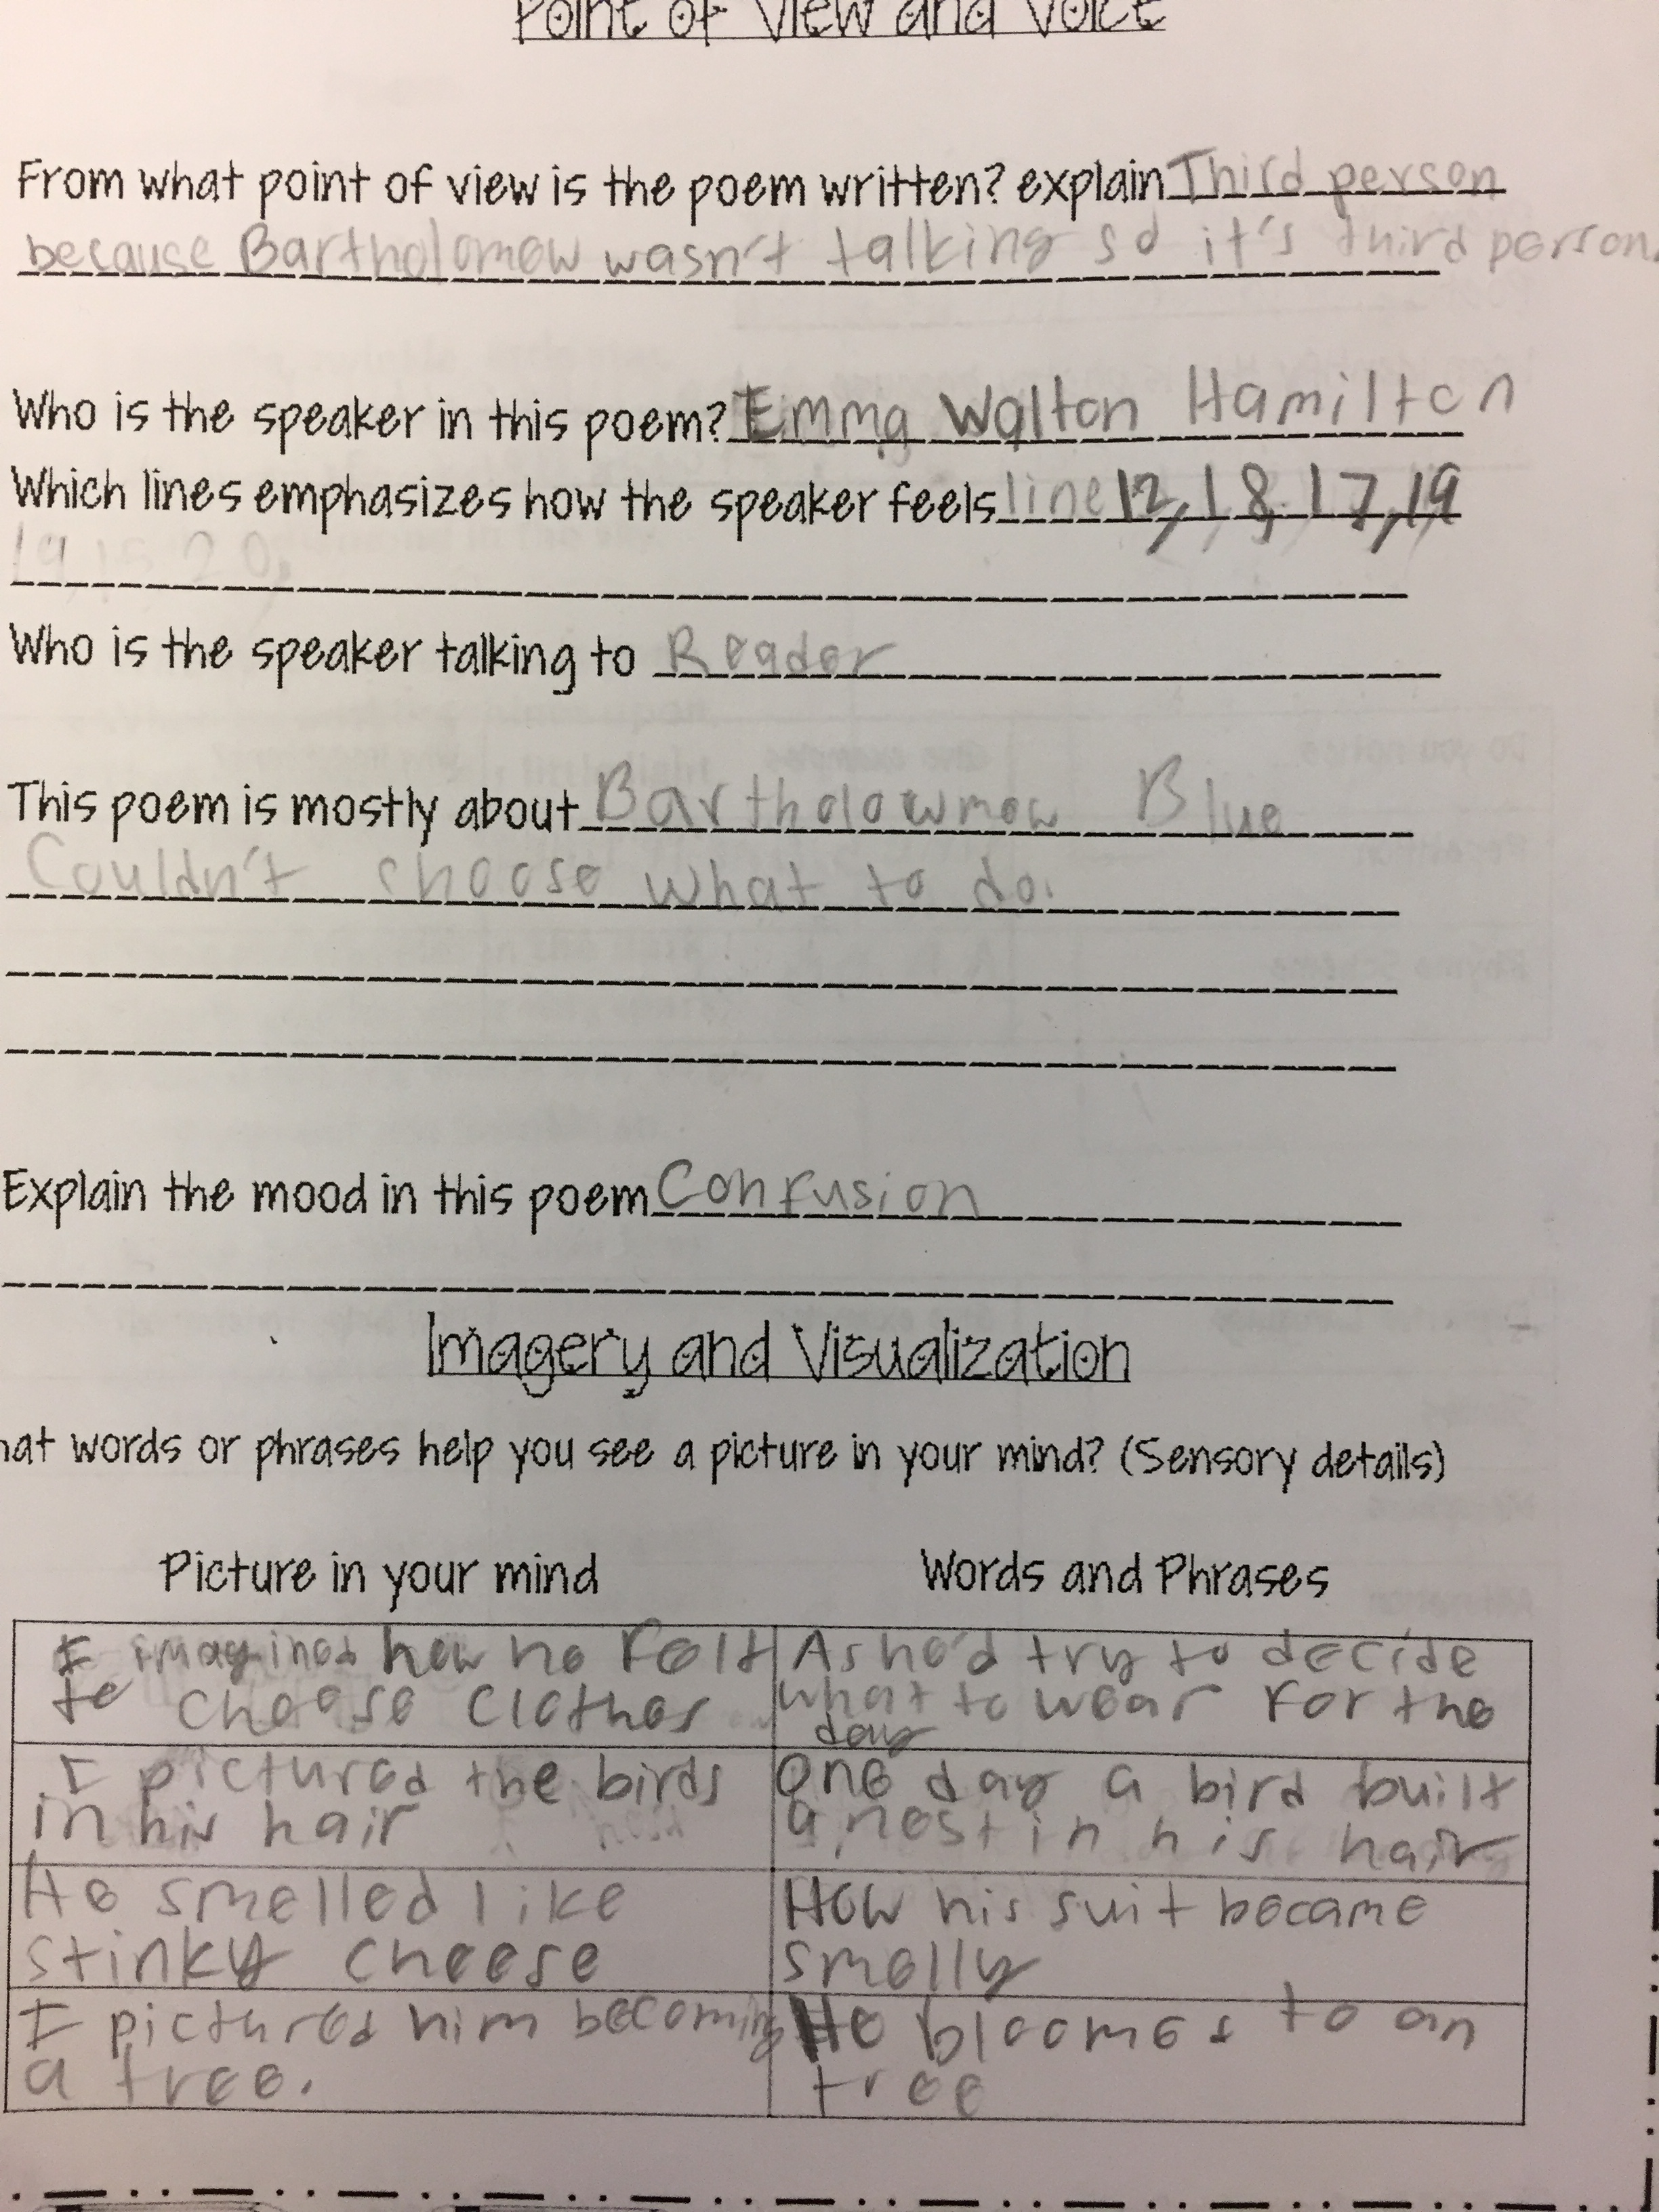 Point of View and Voice
From what point of view is the poem written? explain Third person
because Bartholomew wasn't talking so it's third person.
Who is the speaker in this poem? Emma Walton Hamilton
Which lines emphasizes how the speaker feels line 12, 18, 17, 19
19, 15, 20,
Who is the speaker talking to Reader
This poem is mostly about Bartholowmew Blue
Couldn't choose what to do.
Explain the mood in this poem Confusion
Imagery and Visualization
hat words or phrases help you see a picture in your mind? (Sensory details)
Picture in your mind Words and Phrases
I imagined how he felt As he'd try to decide
to choose clothes what to wear for the
day
I pictured the birds One day a bird built
in his hair a nest in his hair
He smelled like How his suit became
stinky cheese smelly
I pictured him becoming He bloomes to an
a tree. tree